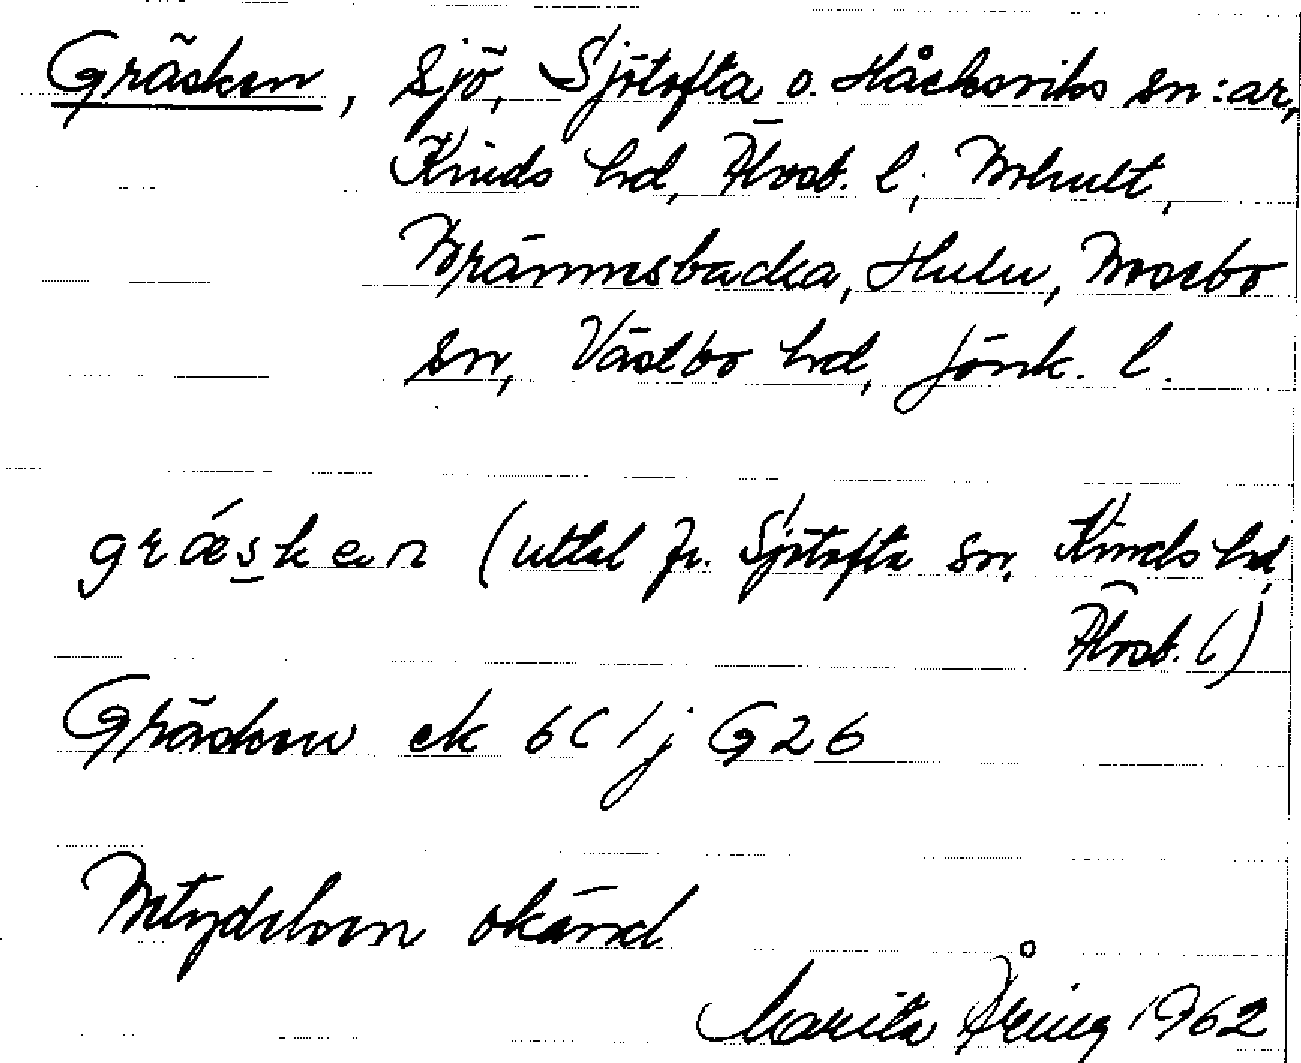 Gräsken, sjö, Sjötofta o. Håcksviks sn:ar,
Kinds hd, Älvsb. l; Bohult,
Brännesbacka, Hulu, Bosebo
sn, Västbo hd, Jönk. l.
græ´sken (uttal fr. Sjötofta sn, Kinds hd,
Älvsb. l)
Gräsken ek 6C1j G26
Betydelsen okänd
Marita Åring 1962